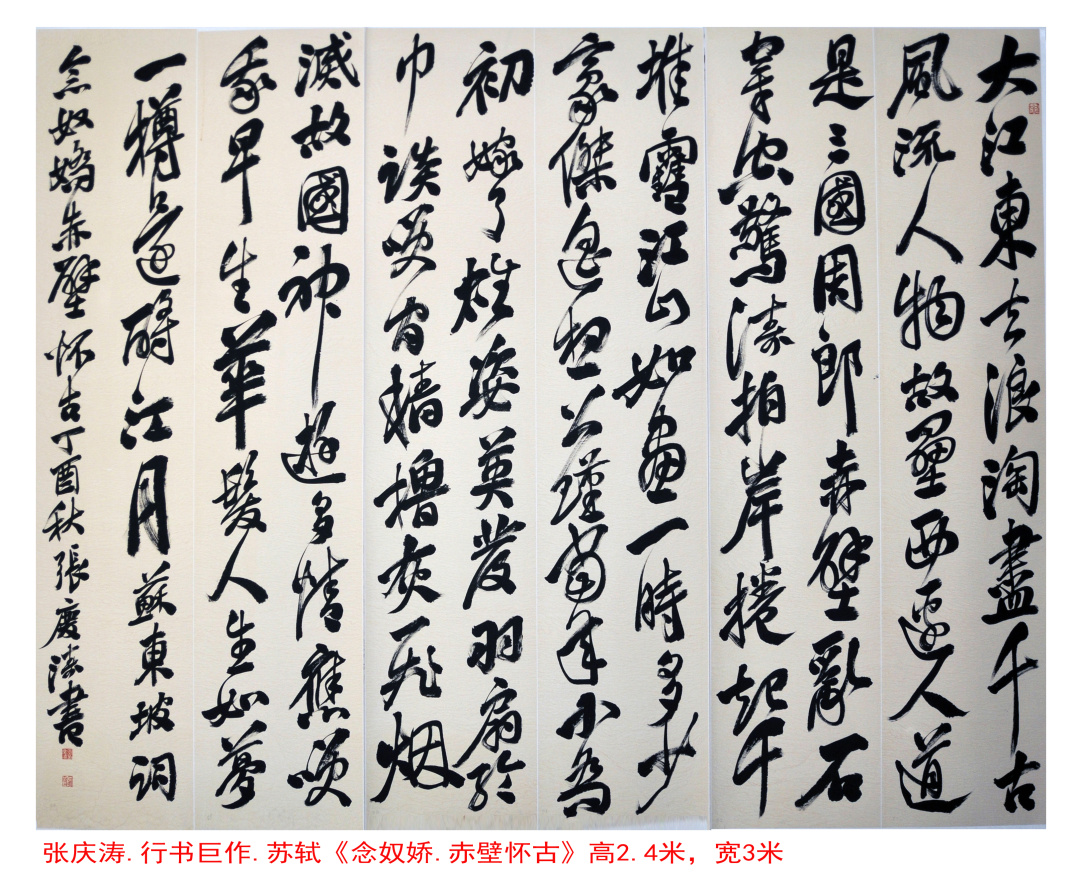 大江東去浪淘盡千古
風流人物故壘西邊人道
是三國周郎赤壁亂石
穿空驚濤拍岸捲起千
堆雪江山如畫一時多少
豪傑遥想公瑾當年小喬
初嫁了雄姿英發羽扇綸
巾談笑間檣櫓灰飛烟
滅故國神遊多情應笑
我早生華髮人生如夢
一樽還酹江月蘇東坡詞
念奴嬌赤壁怀古丁酉秋張慶濤書
张庆涛.行书巨作.苏轼《念奴娇.赤壁怀古》高2.4米，宽3米